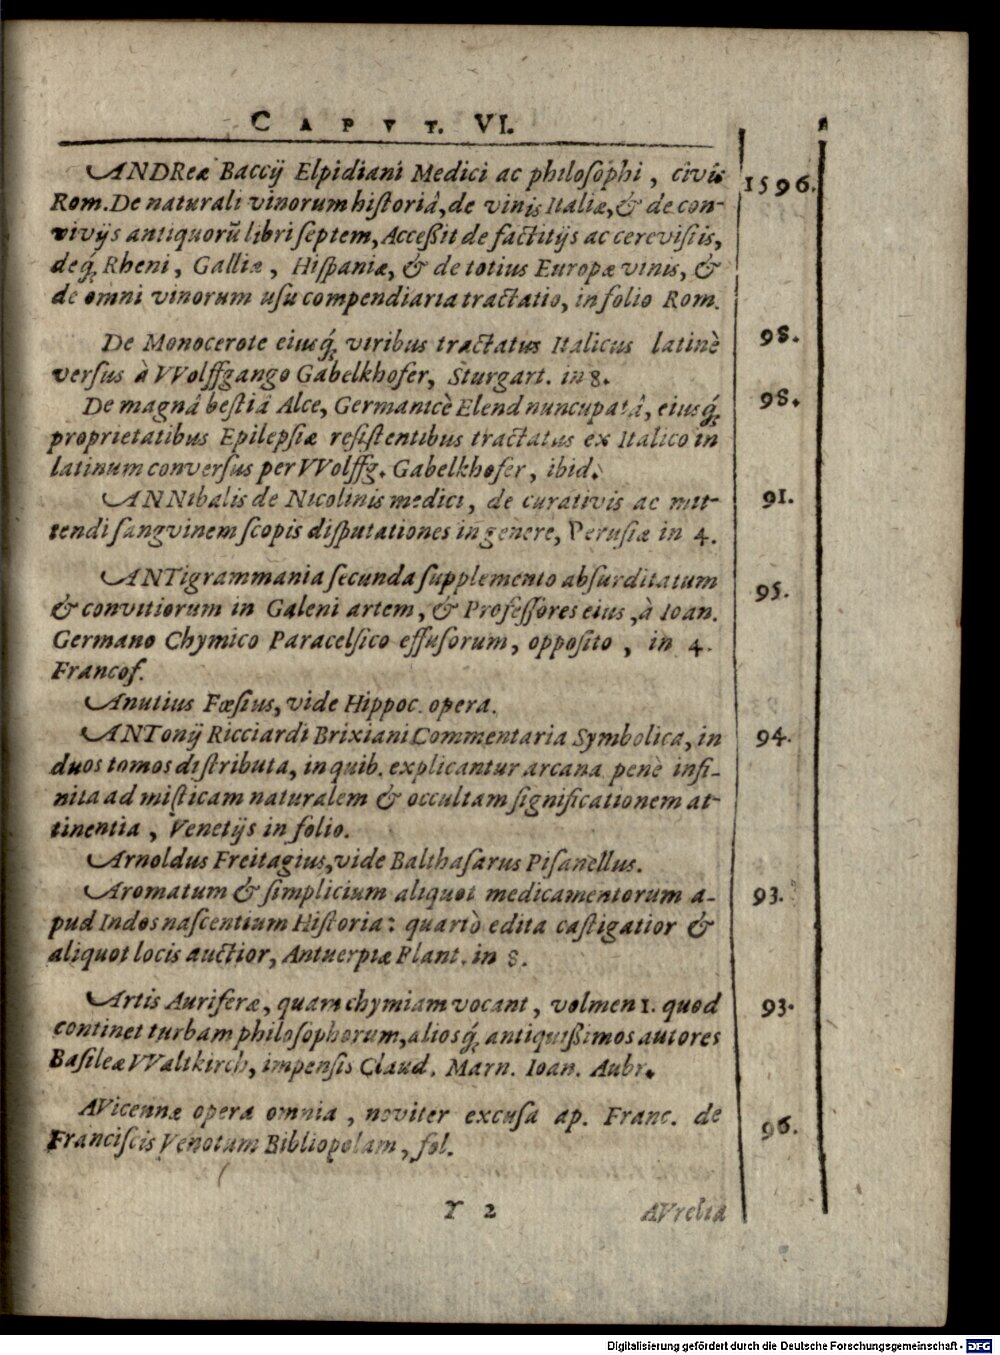 CAPVT. VI.
ANDReæ Baccij Elpidiani Medici ac philosophi, civis 1596.
Rom. De naturali vinorum historiâ, de vinis Italiæ, & de con-
vivijs antiquorũ libri septem, Acceßit de factitijs ac cerevisiis,
deq́; Rheni, Galliæ, Hispaniæ, & de totius Europæ vinis, &
de omni vinorum usu compendiaria tractatio, in folio Rom.
De Monocerote eiusq́; viribus tractatus Italicus latinè 98.
versus à VVolffgango Gabelkhofer, Sturgart. in 8.
De magnâ bestiâ Alce, Germanicè Elend nuncupatâ, eiusq́; 98.
proprietatibus Epilepsiæ resistentibus tractatus ex Italico in
latinum conversus per VVolffg. Gabelkhofer, ibid.
ANNibalis de Nicolinis medici, de curativis ac mit- 91.
tendi sangvinem scopis disputationes in genere, Perusiæ in 4.
ANTigrammania secunda supplemento absurditatum 95.
& convitiorum in Galeni artem, & Professores eius, à Ioan.
Germano Chymico Paracelsico effusorum, opposito, in 4.
Francof.
Anutius Fœsius, vide Hippoc. opera.
ANTonij Ricciardi Brixiani Commentaria Symbolica, in 94.
duos tomos distributa, in quib. explicantur arcana penè infi-
nita ad misticam naturalem & occultam significationem at-
tinentia, Venetijs in folio.
Arnoldus Freitagius, vide Balthasarus Pisanellus.
Aromatum & simplicium aliquot medicamentorum a- 93.
pud Indos nascentium Historia: quartò edita castigatior &
aliquot locis auctior, Antuerpiæ Plant. in 8.
Artis Auriferæ, quam chymiam vocant, volmen 1. quod 93.
continet turbam philosophorum, aliosq́; antiquißimos autores
Basileæ VValtkirch, impensis Claud. Marn. Ioan. Aubr.
AVicennæ opera omnia, noviter excusa ap. Franc. de 96.
Franciscis Venotum Bibliopolam, fol.
Y 2 AVrelia
Digitalisierung gefördert durch die Deutsche Forschungsgemeinschaft - DFG